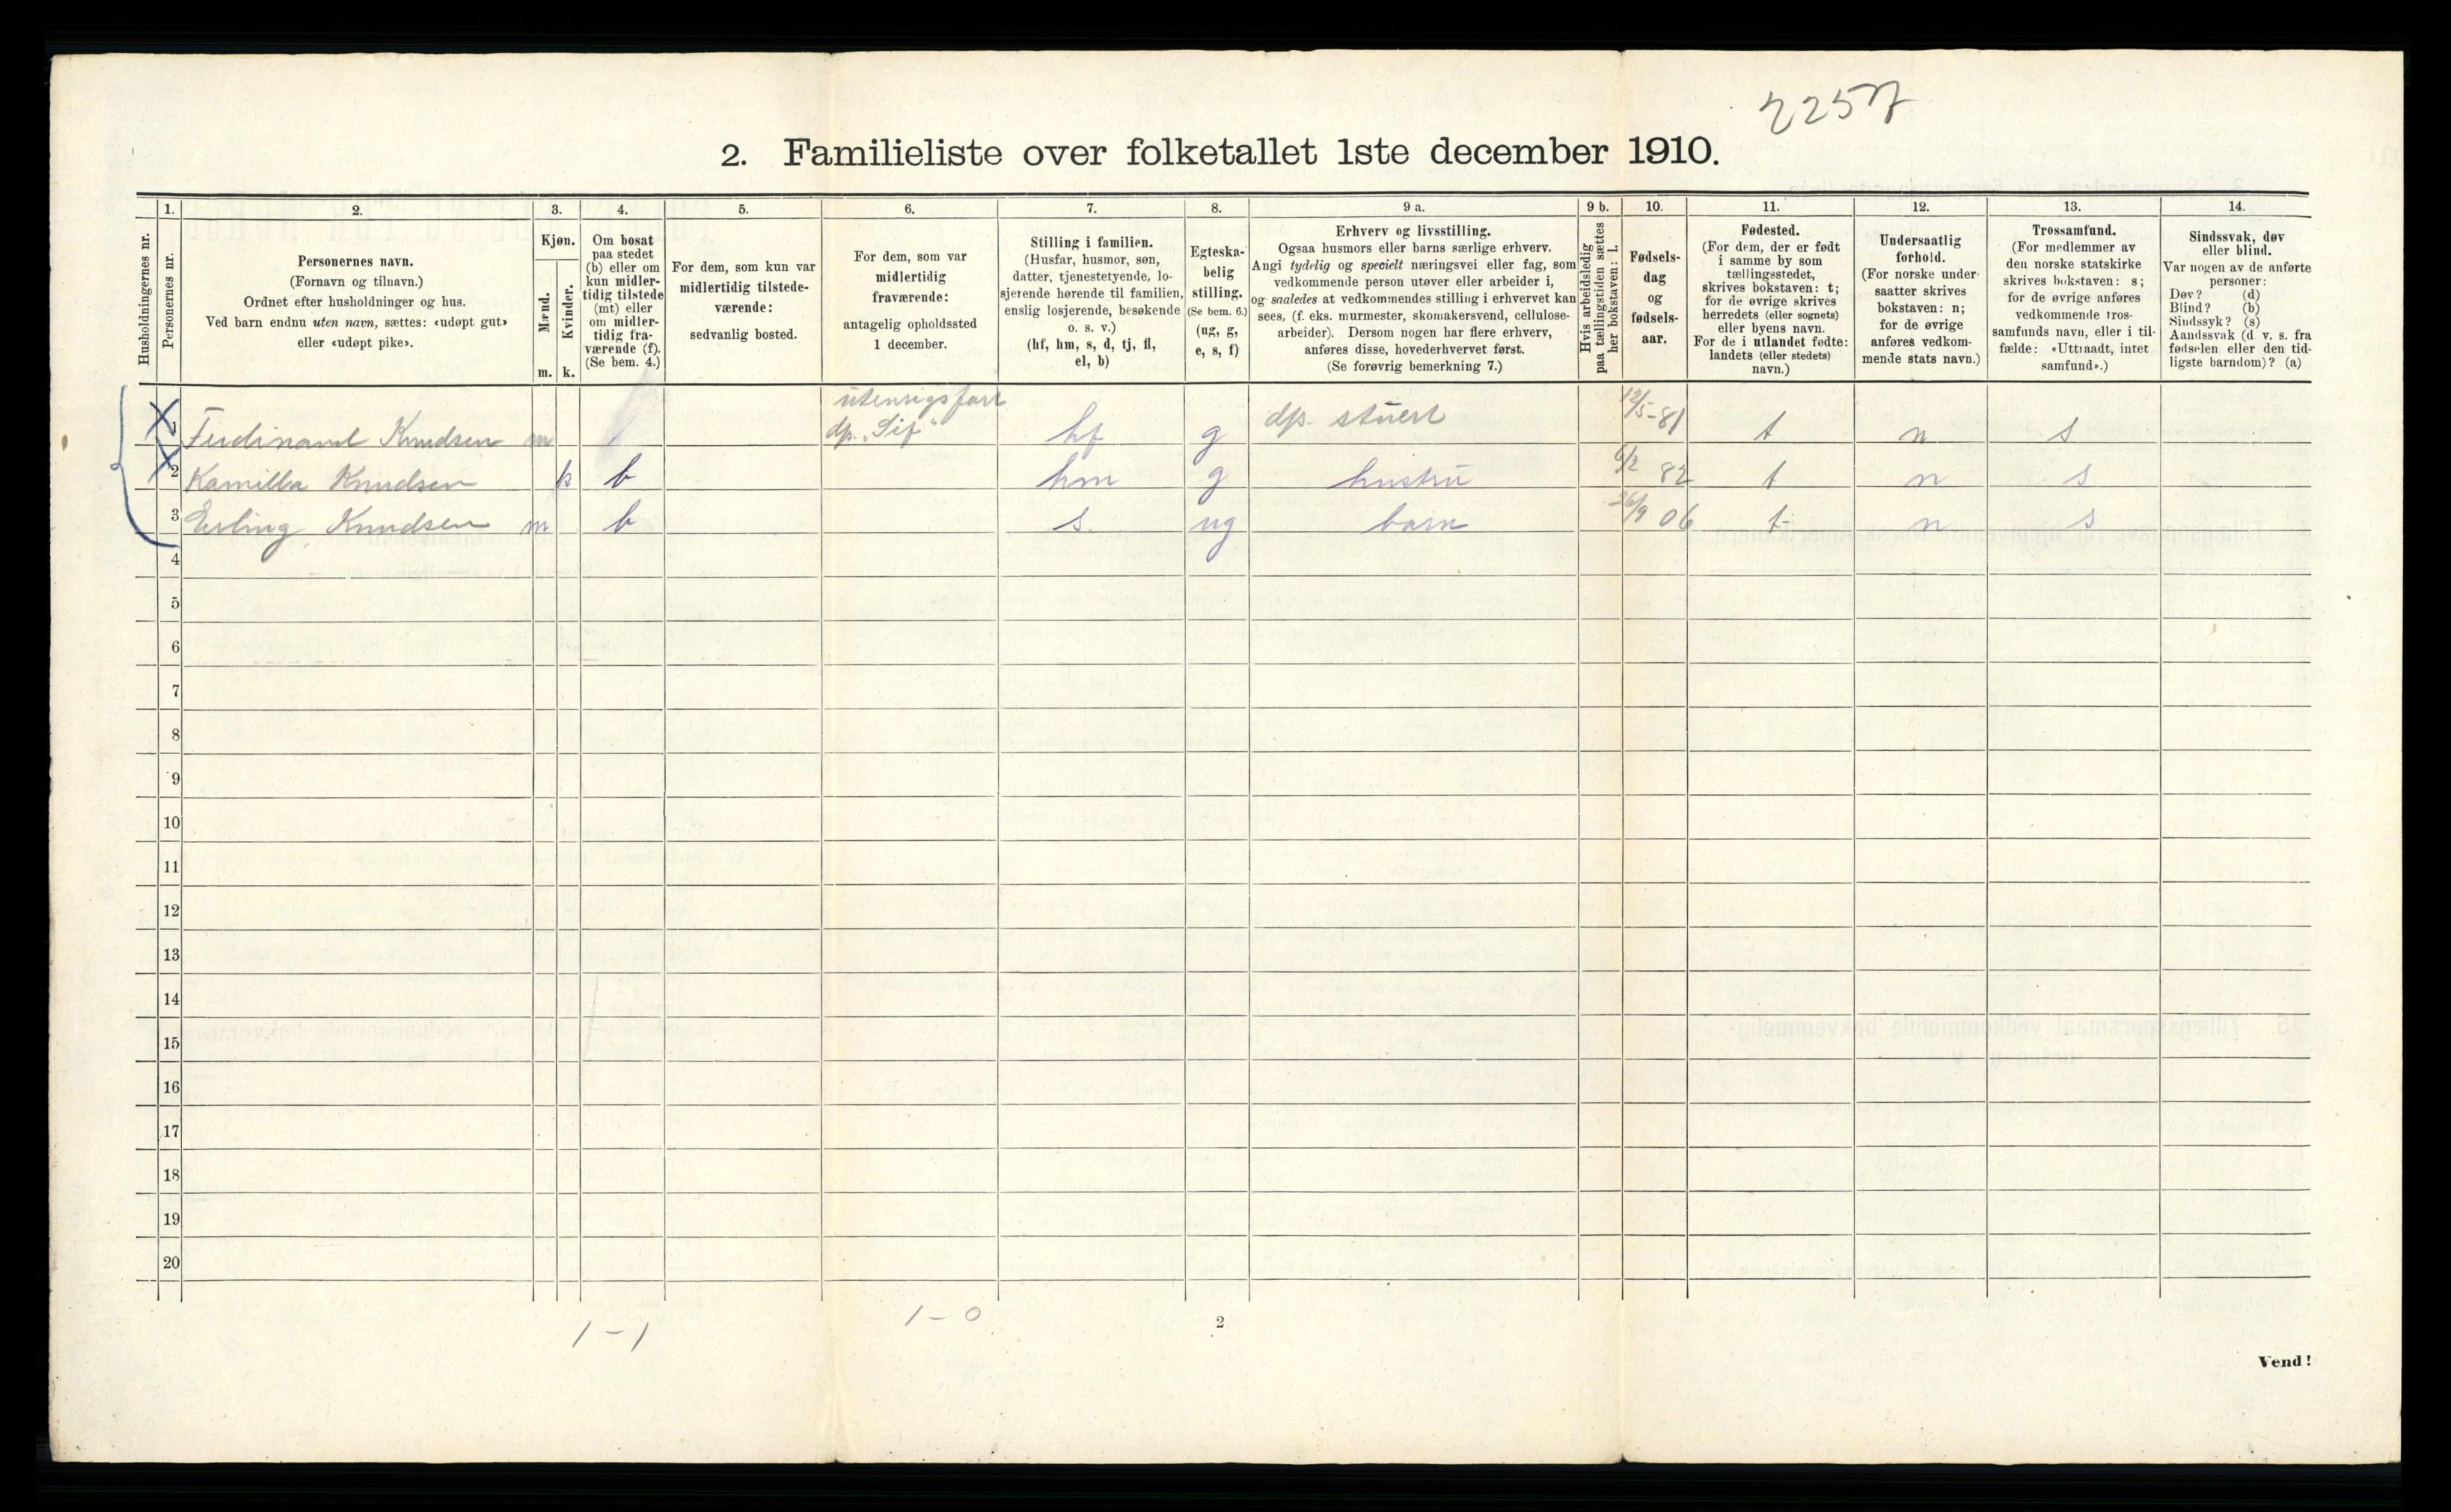 2257
2. Familieliste over folketallet 1ste december 1910.
Husholdningernes nr.
1.
Personernes nr.
2.
Personernes navn.
(Fornavn og tilnavn.)
Ordnet efter husholdninger og hus.
Ved barn endnu uten navn, sættes: «udøpt gut»
eller «udøpt pike».
3.
Kjøn.
Mænd.
Kvinder.
m. k.
4.
Om bosat
paa stedet
(b) eller om
kun midler-
tidig tilstede
(mt) eller
om midler-
tidig fra-
værende (f).
(Se bem. 4.)
5.
For dem, som kun var
midlertidig tilstede-
værende:
sedvanlig bosted.
6.
For dem, som var
midlertidig
fraværende:
antagelig opholdssted
1 december.
7.
Stilling i familien.
(Husfar, husmor, søn,
datter, tjenestetyende, lo-
sjerende hørende til familien,
enslig losjerende, besøkende
o. s. v.)
(hf, hm, s, d, tj, fl,
el, b)
8.
Egteska-
belig
stilling.
(Se bem. 6.)
(ug, g,
e, s, f)
9 a.
Erhverv og livsstilling.
Ogsaa husmors eller barns særlige erhverv.
Angi tydelig og specielt næringsvei eller fag, som
vedkommende person utøver eller arbeider i,
og saaledes at vedkommendes stilling i erhvervet kan
sees, (f. eks. murmester, skomakersvend, cellulose-
arbeider). Dersom nogen har flere erhverv,
anføres disse, hovederhvervet først.
(Se forøvrig bemerkning 7.)
9 b.
Hvis arbeidsledig
paa tællingstiden sættes
her bokstaven: l.
10.
Fødsels-
dag
og
fødsels-
aar.
11.
Fødested.
(For dem, der er født
i samme by som
tællingsstedet,
skrives bokstaven: t;
for de øvrige skrives
herredets (eller sognets)
eller byens navn.
For de i utlandet fødte:
landets (eller stedets)
navn.)
12.
Undersaatlig
forhold.
(For norske under-
saatter skrives
bokstaven: n;
for de øvrige
anføres vedkom-
mende stats navn.)
13.
Trossamfund.
(For medlemmer av
den norske statskirke
skrives bokstaven: s;
for de øvrige anføres
vedkommende tros-
samfunds navn, eller i til-
fælde: «Uttraadt, intet
samfund».)
14.
Sindssvak, døv
eller blind.
Var nogen av de anførte
personer:
Døv? (d)
Blind? (b)
Sindssyk? (s)
Aandssvak (d. v. s. fra
fødselen eller den tid-
ligste barndom)? (a)
utenrigsfart
1 Ferdinand Knudsen m dp. „Sif“ hf g dp. stuert 12/5-81 t n s
2 Kamilla Knudsen k b hm g hustru 6/2 82 t n s
3 Erling Knudsen m b s. ug barn 26/9 06 t n s
4
5
6
7
8
9
10
11
12
13
14
15
16
17
18
19
20
1-1
1-0
2
Vend!